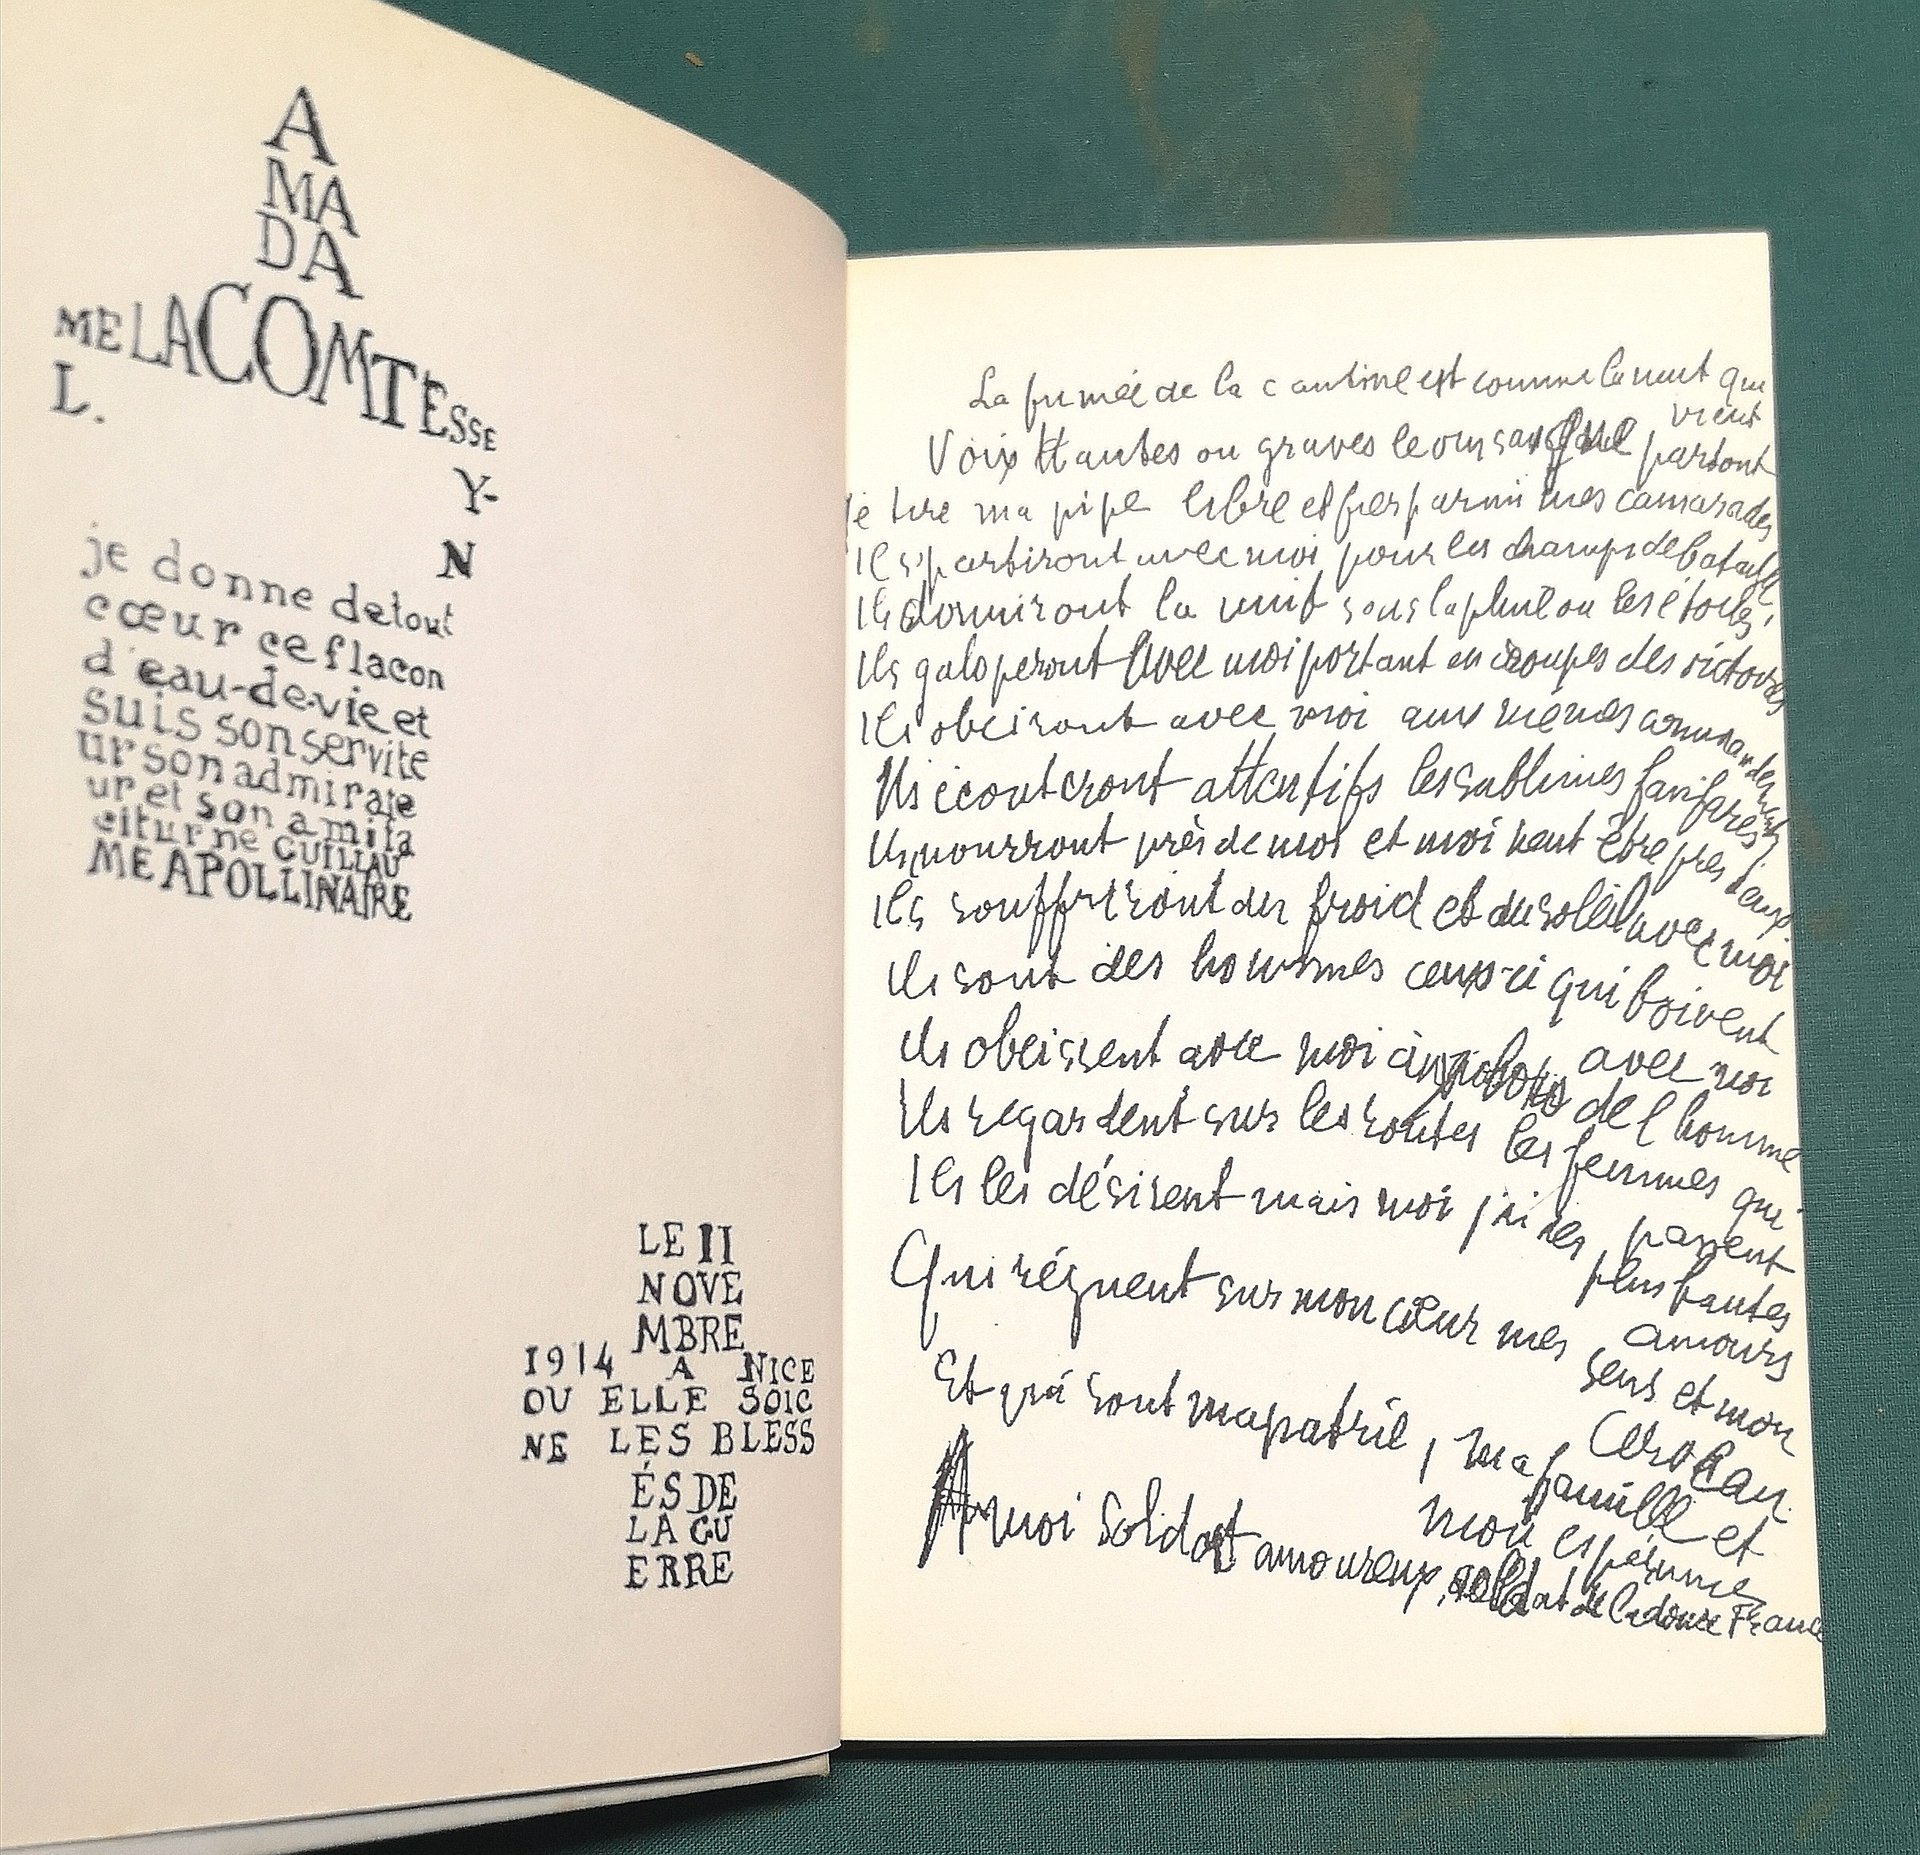 A
MA
DA
ME LA COMTESSE
L.
Y-
N
je donne detout
cœur ce flacon
d'eau-de-vie et
suis son servite
ur son admirate
ur et son ami ta
citurne GUILLAU
ME APOLLINAIRE
LE 11
NOVE
MBRE
1914 A NICE
OU ELLE SOIG
NE LES BLESS
ÉS DE
LA GU
ERRE
La fumée de la cantine est comme la nuit qui
vient
Voix Hautes ou graves le vin saigne partout
Je tire ma pipe libre et fier parmi mes camarades
Ils partiront avec moi pour les champs de bataille
Ils dormiront la nuit sous la pluie ou les étoiles
Ils galoperont avec moi portant en croupes des victoires
Ils obéiront avec moi aux mêmes commandements
Ils écouteront attentifs les sublimes fanfares
Ils mourront près de moi et moi peut être près d'eux
Ils souffriront du froid et du soleil avec moi
Ils sont des hommes ceux-ci qui boivent
avec moi
Ils obéissent avec moi aux lois de l'homme
Ils regardent sur les routes les femmes qui
passent
Ils les désirent mais moi j'ai des plus hautes
amours
Qui règnent sur mon cœur mes sens et mon
cerveau
Et qui sont ma patrie, ma famille et
mon espérance
A moi soldat amoureux, soldat de la douce France